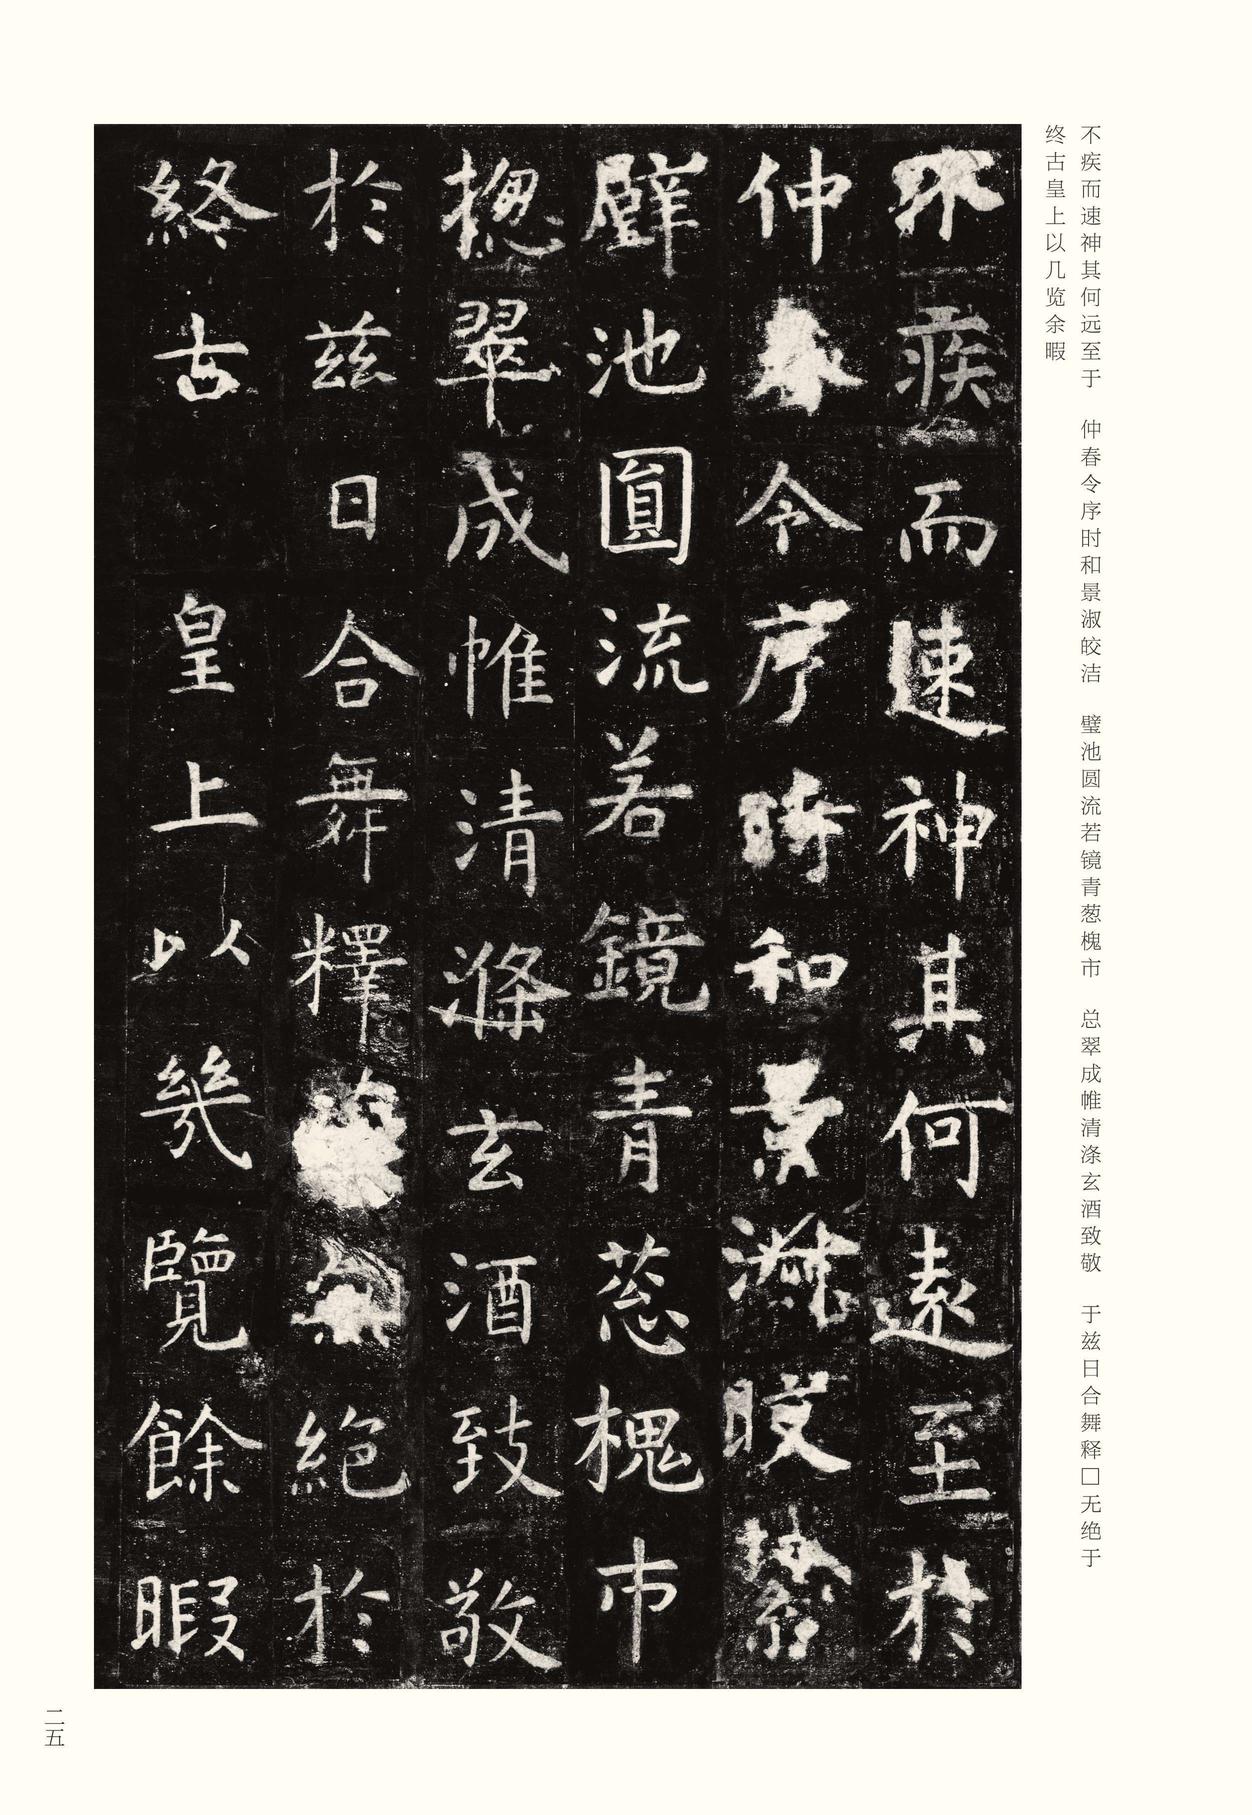 不疾而速神其何远至于　仲春令序时和景淑皎洁　璧池圆流若镜青葱槐市　总翠成帷清涤玄酒致敬　于兹日合舞释□无绝于
终古皇上以几览余暇
不疾而速神其何遠至於
仲春令序時和景淑皎潔
璧池圓流若鏡青葱槐市
揔翠成帷清滌玄酒致敬
於兹日合舞釋絶於
終古 皇上以幾覽餘暇
二五